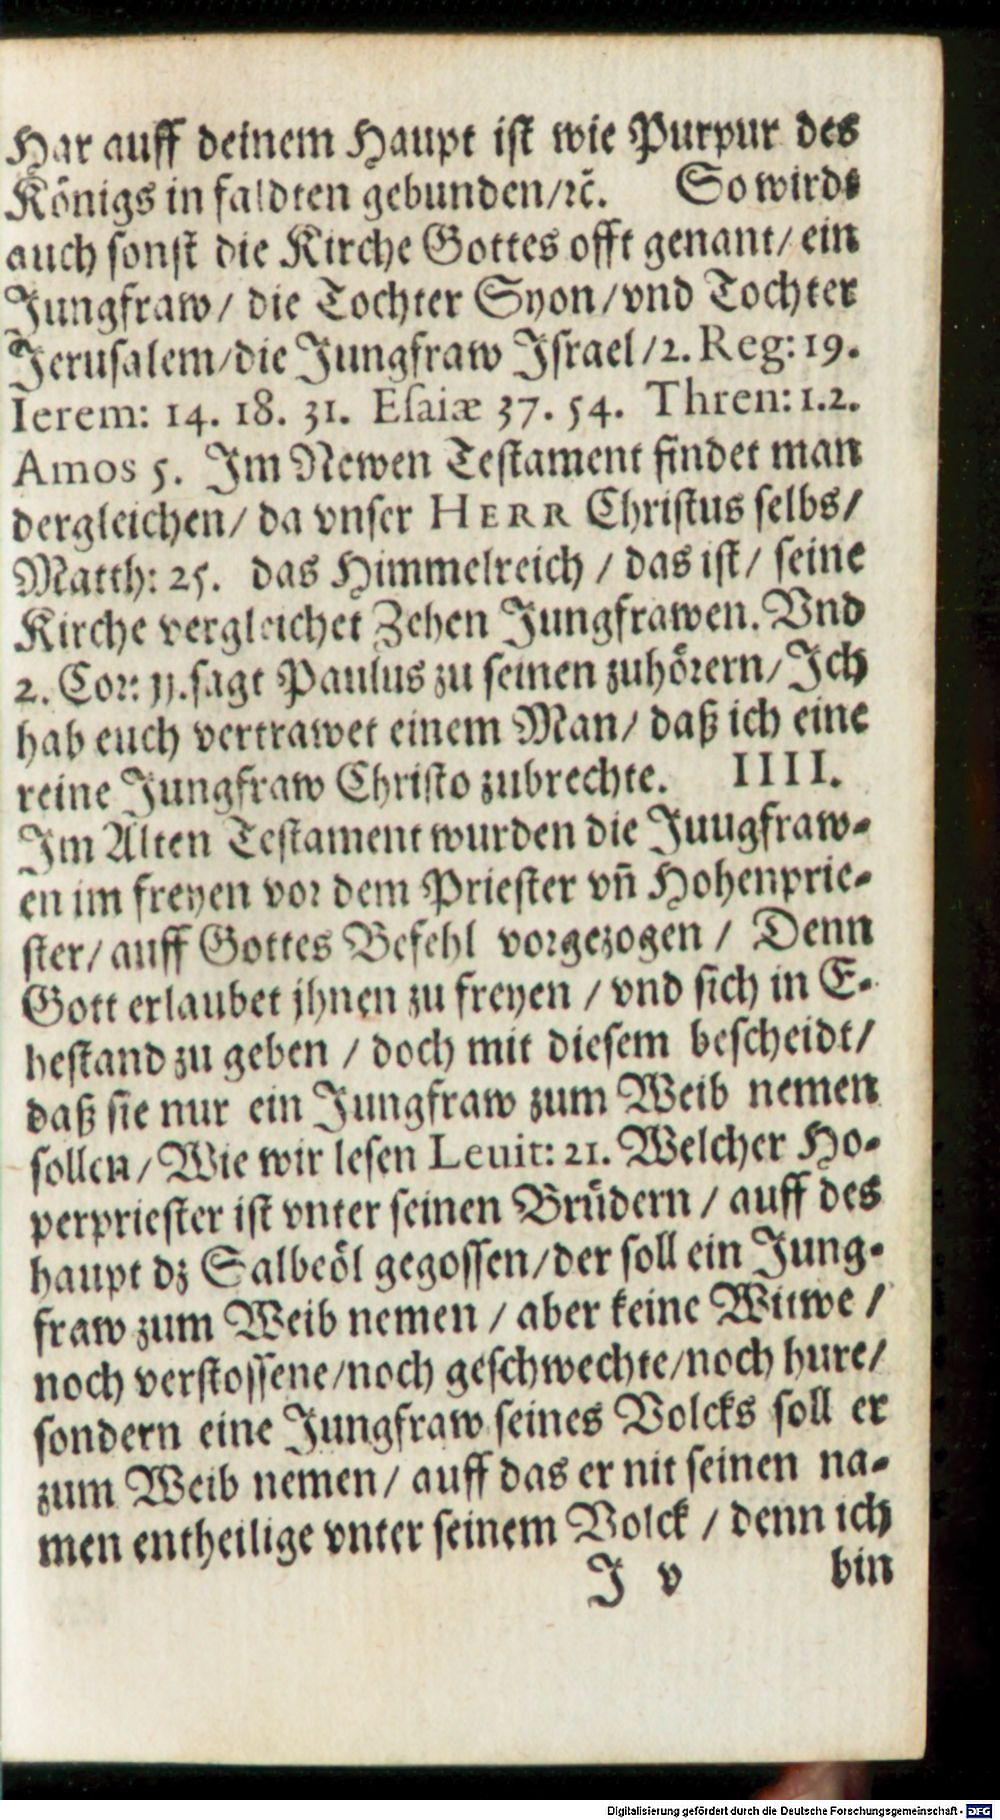 Har auff deinem Haupt ist wie Purpur des
Königs in faldten gebunden/ꝛc̃. So wirds
auch sonst die Kirche Gottes offt genant/ ein
Jungfraw/ die Tochter Syon/vnd Tochter
Jerusalem/die Jungfraw Jsrael/2. Reg: 19.
Ierem: 14. 18. 31. Esaiæ 37. 54. Thren: 1.2.
Amos 5. Jm Newen Testament findet man
dergleichen/ da vnser HERR Christus selbs/
Matth: 25. das Himmelreich / das ist/ seine
Kirche vergleichet Zehen Jungfrawen. Vnd
2. Cor: 11. sagt Paulus zu seinen zuhörern/ Jch
hab euch vertrawet einem Man/ daß ich eine
reine Jungfraw Christo zubrechte. IIII.
Jm Alten Testament wurden die Juugfraw-
en im freyen vor dem Priester vñ Hohenprie-
ster/ auff Gottes Befehl vorgezogen / Denn
Gott erlaubet jhnen zu freyen / vnd sich in E-
hestand zu geben / doch mit diesem bescheidt/
daß sie nur ein Jungfraw zum Weib nemen
sollen/ Wie wir lesen Leuit: 21. Welcher Ho-
perpriester ist vnter seinen Brüdern / auff des
haupt dz Salbeöl gegossen/der soll ein Jung-
fraw zum Weib nemen / aber keine Witwe /
noch verstossene/noch geschwechte/noch hure/
sondern eine Jungfraw seines Volcks soll er
zum Weib nemen/ auff das er nit seinen na-
men entheilige vnter seinem Volck / denn ich
J v bin
Digitalisierung gefördert durch die Deutsche Forschungsgemeinschaft - DFG